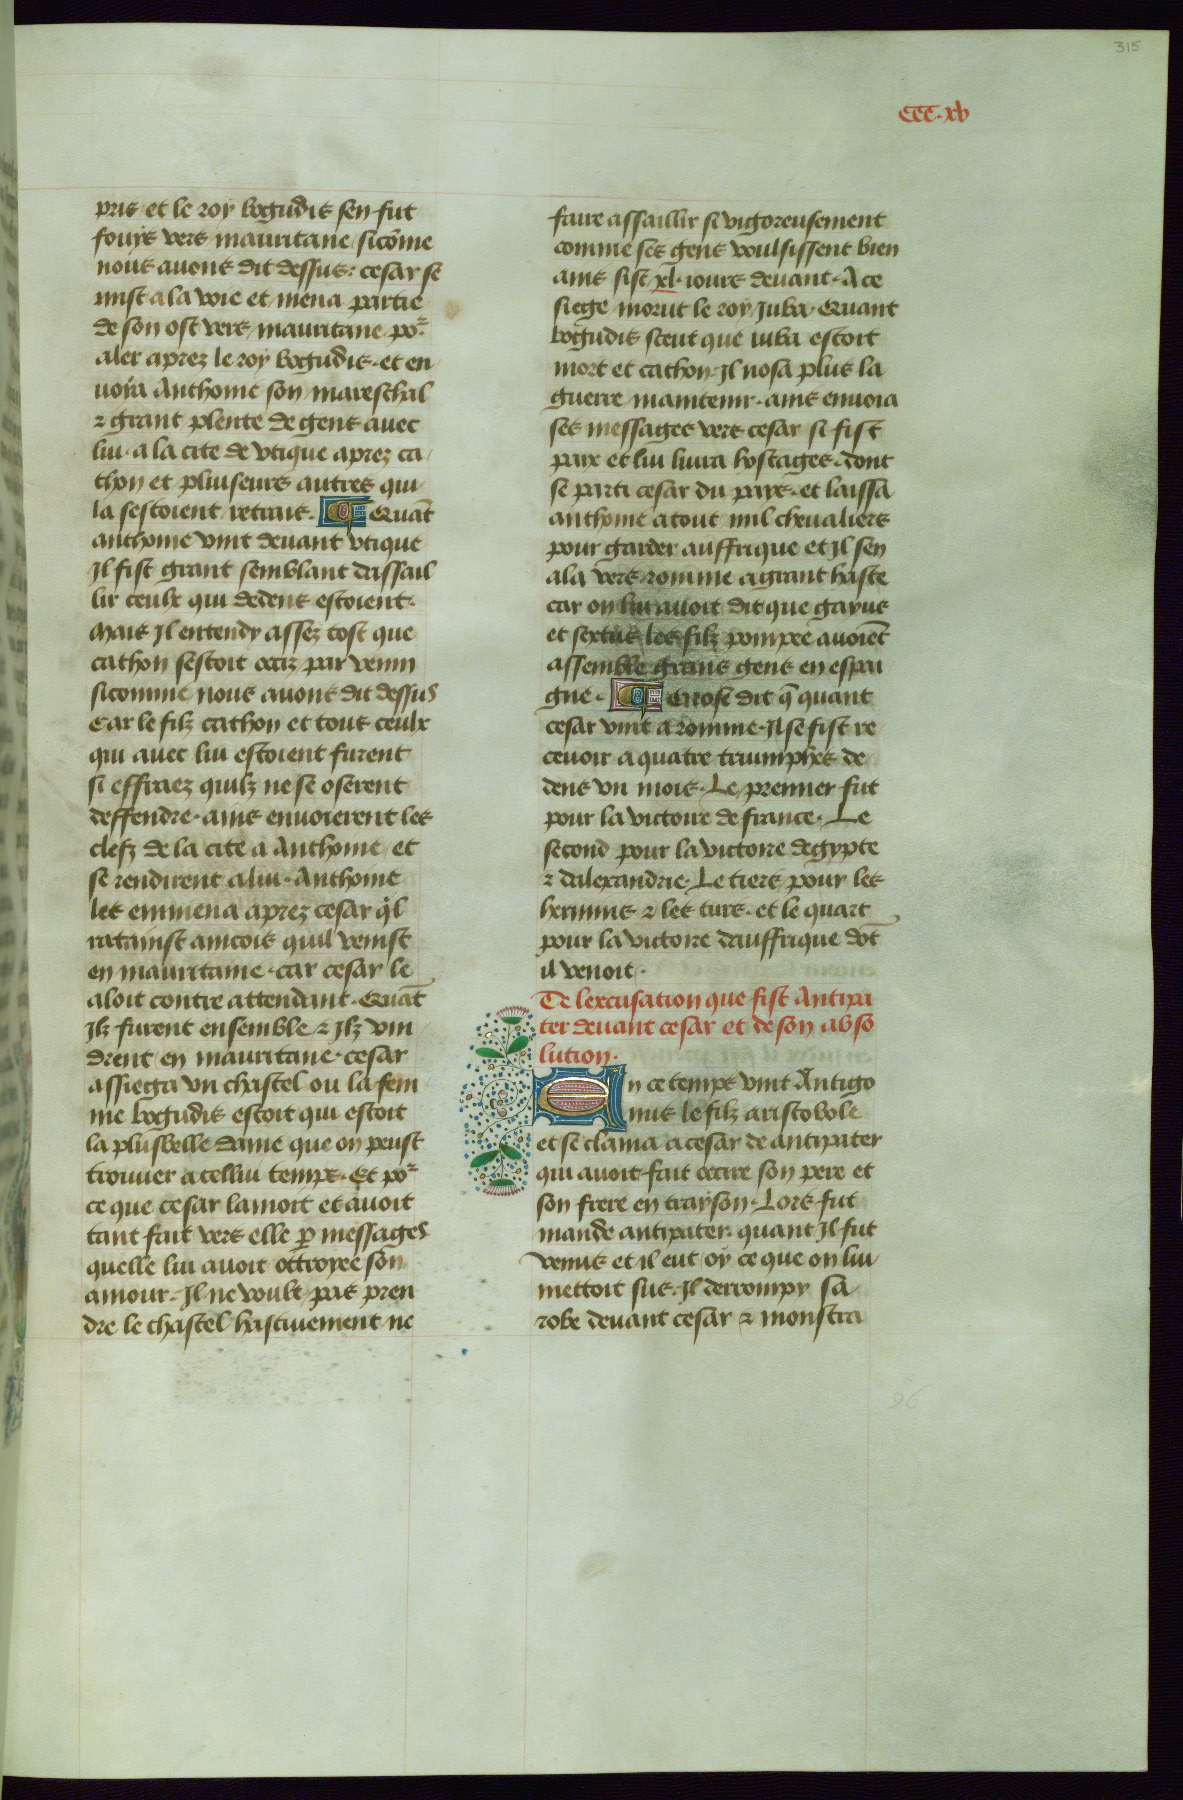 315
CCC.xv
pris et le roy bogudis sen fut
fouys vers mauritane sicõme
nous auons dit dessus: cesar se
mist a la voie et mena partie
de son ost vers mauritane po᷑
aler aprez le roy bogudis. et en
uoia Anthoine son mareschal
⁊ grant plente de gens auec
lui. a la cite de vtique aprez ca
thon et pluiseurs autres qui
la sestoient retrais. Quãt
anthoine vint deuant vtique
Il fist grant semblant dassail
lir ceulx qui dedens estoient.
Mais Il entendy assez tost que
cathon sestoit occiz par venin
sicomme nous auons dit dessus
Car le filz cathon et tous ceulx
qui auec lui estoient furent
si effraez quilz ne se oserent
deffendre. ains enuoierent les
clefz de la cite a Anthoine et
se rendirent a lui. Anthoine
les emmena aprez cesar q̃l
ratainst aincois quil venist
en mauritaine. car cesar le
aloit contre attendant. Quãt
Ilz furent ensemble ⁊ Ilz vin
drent en mauritane. cesar
assiega vn chastel ou la fem
me bogudis estoit qui estoit
la plusbelle dame que on peust
trouuer a cellui temps. Et po᷑
ce que cesar lamoit et auoit
tant fait vers elle ꝑ messages
quelle lui auoit ottroyee son
amour. Il ne voult pas pren
dre le chastel hastiuement ne
faire assaillir si vigoreusement
comme ses gens voulsissent bien
ains sist xl. iours deuant. A ce
siege morut le roy Juba. Quant
bogudis sceut que iuba estoit
mort et cathon. Il nosa plus la
guerre maintenir. ains enuoia
ses messages vers cesar si fist
paix et lui liura hostages. dont
se parti cesar du pays. et laissa
anthoine a tout mil cheualiers
pour garder auffrique et Il sen
ala vers romme a grant haste
car on lui auoit dit que gayus
et sextus les filz pompee auoiẽt
assemble grans gens en espai
gne. Crose dit q̃ quant
cesar vint a romme. Il se fist re
ceuoir a quatre triumphes de
dens vn mois. Le premier fut
pour la victoire de france. Le
second pour la victoire degypte
⁊ dalexandrie. Le tiers pour les
hermins ⁊ les turs. et le quart
pour la victoire dauffrique dõt
il venoit.
De lexcusation que fist Antipa
ter deuant cesar et de son abso
lution.
En ce temps vint Antigo
nus le filz aristobole
et se clama a cesar de antipater
qui auoit fait occire son pere et
son frere en trayson. Lors fut
mande antipater. quant Il fut
venus et il eut oy ce que on lui
mettoit sus. Il derrompy sa
robe deuant cesar ⁊ monstra
96